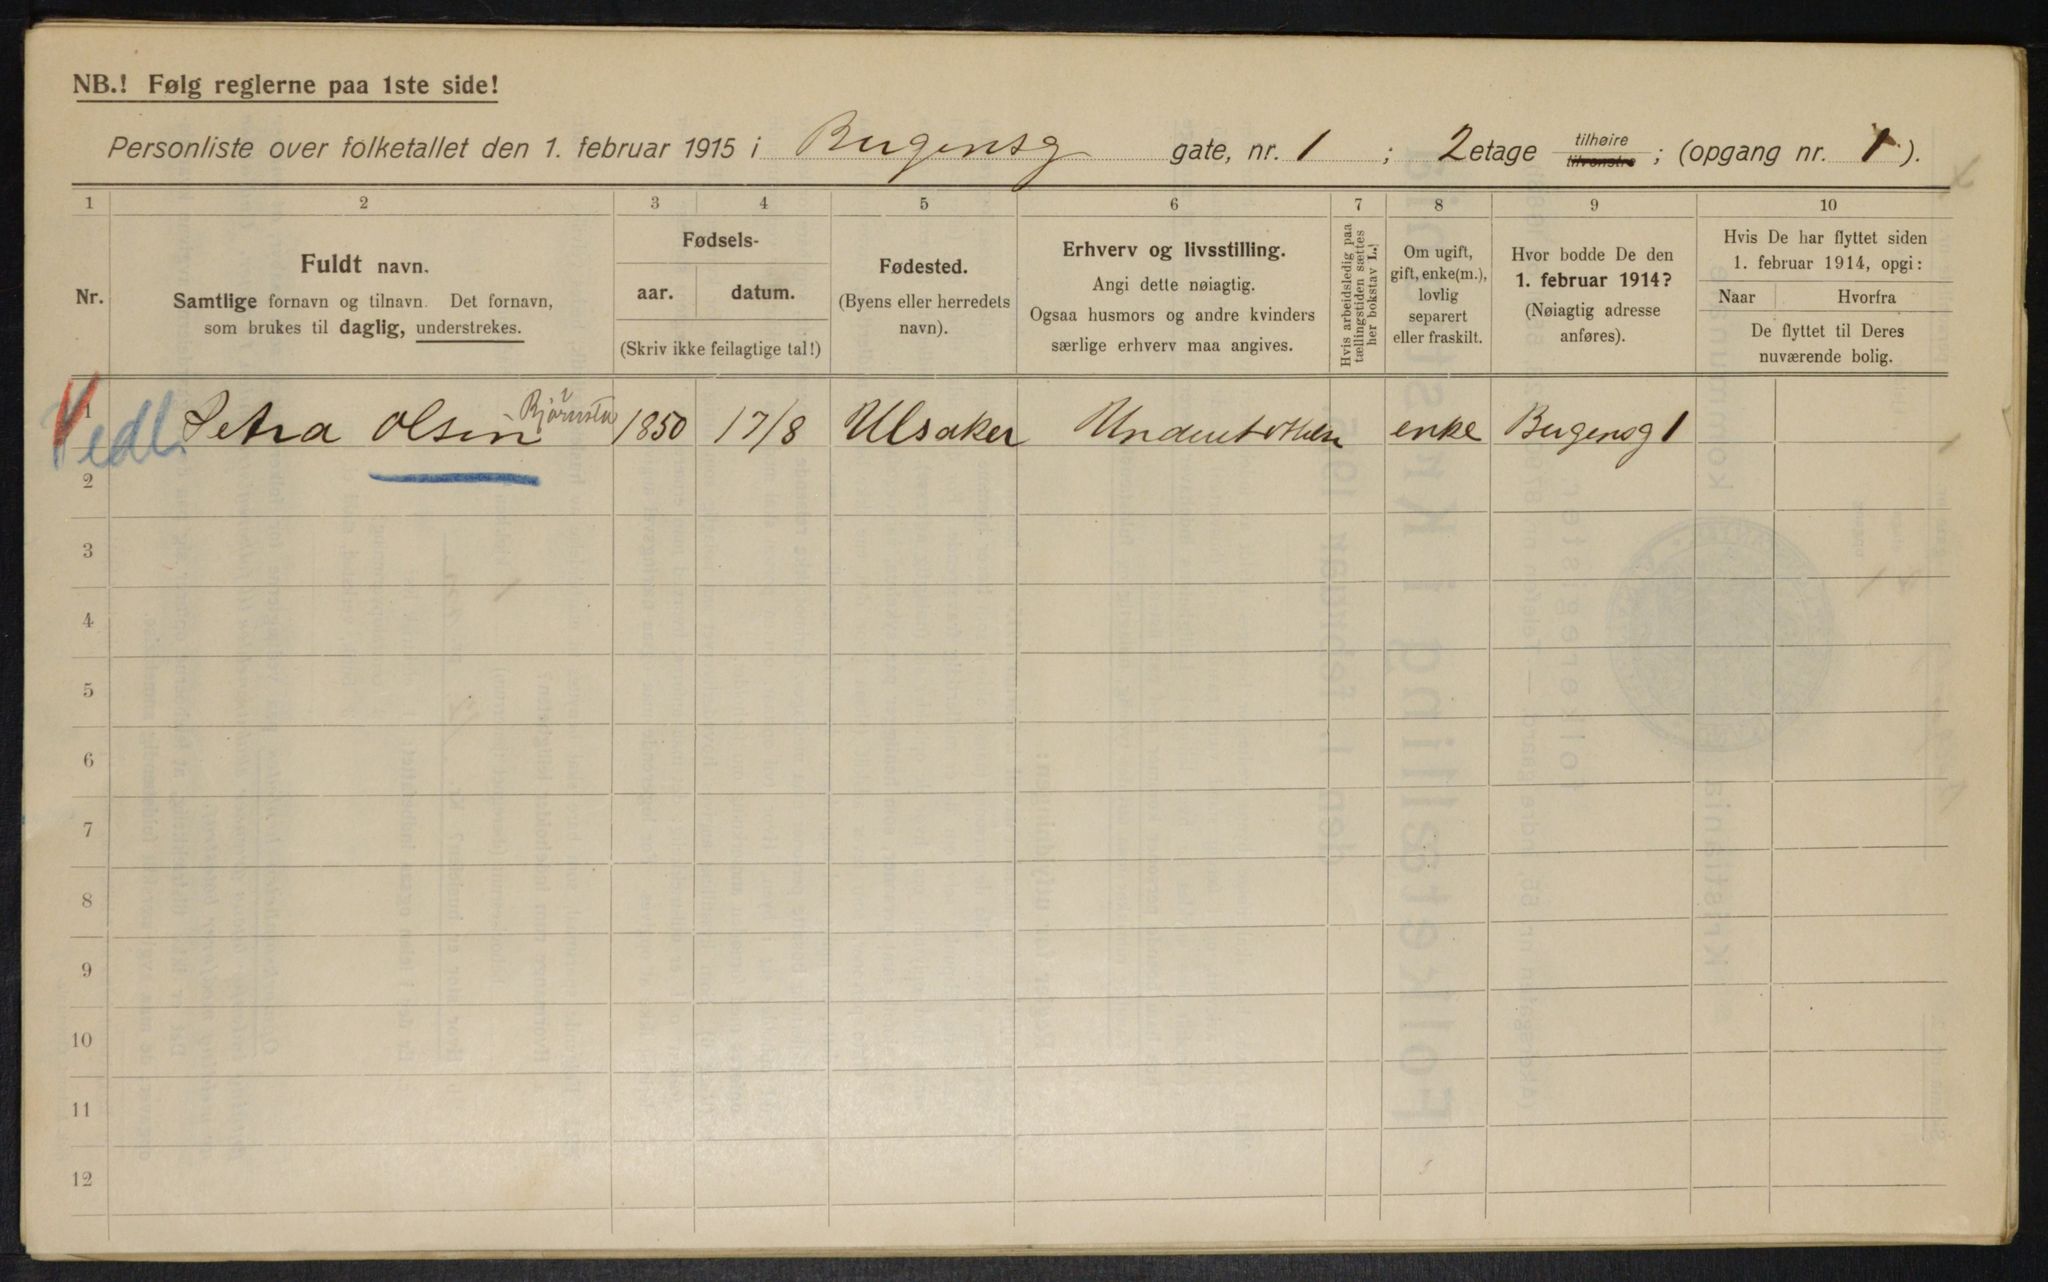 NB.! Følg reglerne paa 1ste side!
Personliste over folketallet den 1. februar 1915 i Bergensg gate, nr. 1 ; 2 etage tilhøire tilvenstre ; (opgang nr. 1 ).
1 2 3 4 5 6 7 8 9 10
Nr.
Fuldt navn.
Samtlige fornavn og tilnavn. Det fornavn,
som brukes til daglig, understrekes.
Fødsels-
aar. datum.
(Skriv ikke feilagtige tal!)
Fødested.
(Byens eller herredets
navn).
Erhverv og livsstilling.
Angi dette nøiagtig.
Ogsaa husmors og andre kvinders
særlige erhverv maa angives.
Hvis arbeidsledig paa
tællingstiden sættes
her bokstav L.!
Om ugift,
gift, enke(m.),
lovlig
separert
eller fraskilt.
Hvor bodde De den
1. februar 1914?
(Nøiagtig adresse
anføres).
Hvis De har flyttet siden
1. februar 1914, opgi:
Naar Hvorfra
De flyttet til Deres
nuværende bolig.
Vedl.
1 Petra Olsen 1850 17/8 Ulsaker enke Bergensg 1
2
3
4
5
6
7
8
9
10
11
12